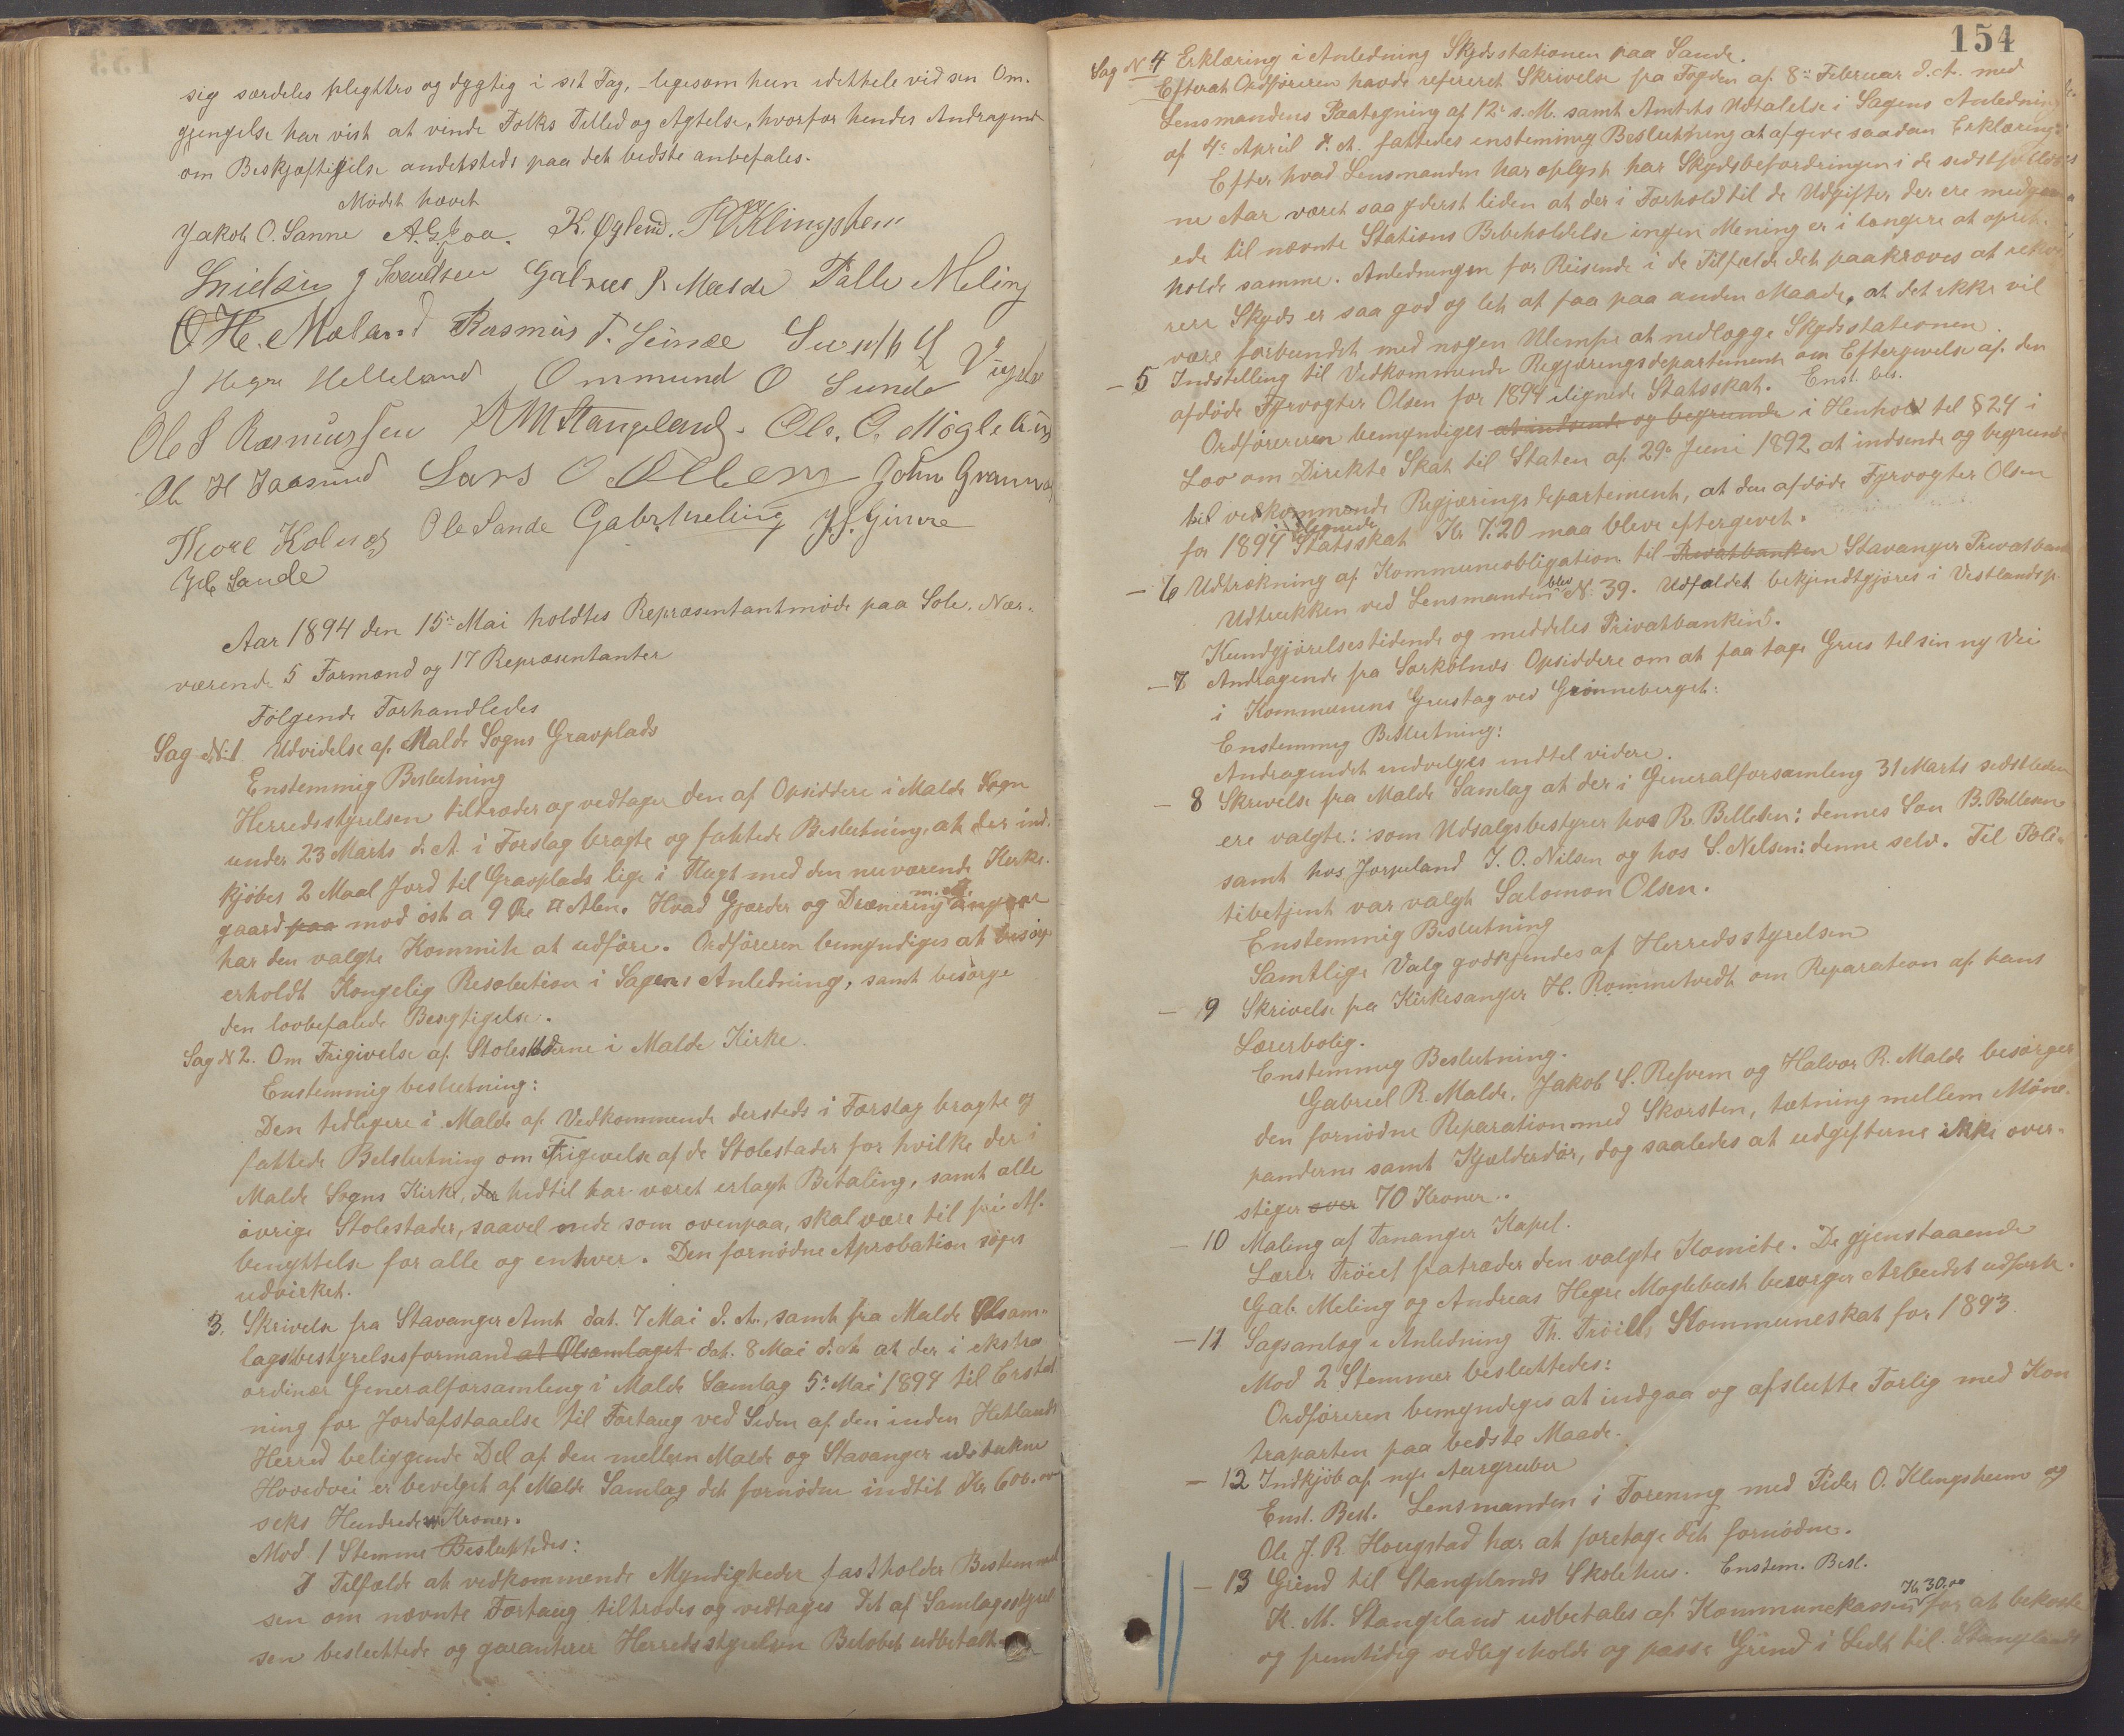 sig særdeles plegttro og dygtig i sit Fag, - ligesom hun idethele ved sin Om-
gjengelse har vist at vinde Folks Tillid og Agtelse, hvorfor hendes Andragende
om Beskjæftigelse andetsteds paa det bedste anbefales.
Mødet hævet
Jakob O. Sanne A. G. Joa. K. Øglend. Klingsheim
J Svendsen Gabriel R Malde Palle Meling
O H. Mæland Rasmus T.
J Hegre Helleland Ommund O Sunde
Ole S Rasmussen K M Stangeland. Ole. C. Møglebust
Ole H Jaasund Lars O Øllem John
Thore Kolnes Ole Sande Gabr. Meling J. J. Gimre
Sande
Aar 1894 den 15de Mai holdtes Repræsentantmøde paa Sole. Nær-
værende 5 Formænd og 17 Repræsentanter
Følgende Forhandledes
Sag N: 1 Udvidelse af Malde Sogns Gravplads
Enstemmig Beslutning
Herredsstyrelsen tiltræder og vedtager den af Opsiddere i Malde Sogn
under 23 Marts d. A. i Forslag bragte og fattede Beslutning, at der ind-
kjøbes 2 Maal Jord til Gravplads lige i Flugt med den nuværende Kirke-
gaard paa mod øst a 9 Øre □ Alen. Hvad Gjærder og Drænering m. M. angaar
har den valgte Kommite at udføre. Ordføreren bemyndiges at besørge
erholdt Kongelig Resolution i Sagens Anledning, samt besørge
den lovbefalede Besigtigelse.
Sag N 2. Om Frigivelse af Stolestaderne i Malde Kirke.
Enstemmig beslutning:
Den tidligere i Malde af Vedkommende dersteds i Forslag bragte og
fattede Belslutning om Frigivelse af de Stolestader for hvilke der i
Malde Sogns Kirke, der hidtil har været erlagt Betaling, samt alle
øvrige Stolestader, saavel nede som ovenpaa, skal være til fri Af-
benyttelse for alle og enhver. Den fornødne Aprobation søges
udvirket.
3. Skrivelse fra Stavanger Amt dat. 7 Mai d. A., samt fra Malde Ølsam-
lagsbestyrelsesformand at Ølsamlaget dat. 8 Mai d. A. at der i ekstra
ordinær Generalforsamling i Malde Samlag 5te Mai 1894 til Erstat
ning for Jordafstaaelse til Fortaug ved Siden af den inden Hetlands
Herred beliggende Del af den mellem Malde og Stavanger udstukne
Hovedvei er bevelget af Malde Samlag det fornødne indtil Kr 600.00
seks Hundrede Kroner.
Mod 1 Stemme Besluttedes:
I Tilfælde at vedkommende Myndigheder fastholder Bestemmel
sen om nævnte Fortaug tiltrædes og vedtages Det af Samlagsstyrel
sen besluttede og garanterer Herredsstyrelsen Beløbet udbetalt
154
Sag N 4 Erklæring i Anledning Skydsstationen paa Sande.
Efterat Ordføreren havde refereret Skrivelse fra Fogden af 8de Februar d. A. med
Lensmandens Paategning af 12te s. M. samt Amtets Udtalelse i Sagens Anledning
af 4de April d. A. fattedes enstemmig Beslutning at afgive saadan Erklæring:
Efter hvad Lensmanden har oplyst har Skydsbefordringen i de sidstforløb
ne Aar været saa yderst liden at der i Forhold til de Udgifter der ere medgaa
ede til nævnte Stations Bibeholdelse ingen Mening er i længere at opret-
holde samme. Anledningen for Reisende i de Tilfælde det paakræves at rekvi
rere Skyds er saa god og let at faa paa anden Maade, at det ikke vil
være forbundet med nogen Ulempe at nedlægge Skydsstationen.
- 5 Indstilling til Vedkommende Regjeringsdepartement om Eftergivelse af den
afdøde Fyrvogter Olsen for 1894 ilignede Statsskat. Enst. bes.
Ordføreren bemyndiges at indsende og begrunde i Henhold til § 24 i
Lov om Direkte Skat til Staten af 29de Juni 1892 at indsende og begrunde
til vedkommende Regjærings departement, at den afdøde Fyrvogter Olsen
for 1894 ilignede Statsskat Kr 7.20 maa blive eftergivet.
- 6 Udtrækning af Kommuneobligation til Privatbanken Stavanger Privatbank
Udtrukken ved Lensmanden blev N: 39. Udfaldet bekjendtgjøres i Vestlandsp.
Kundgjørelsestidende og meddeles Privatbanken.
- 7 Andragende fra Sørkolnes Opsiddere om at faa tage Grus til sin ny Vei
i Kommunens Grustag ved Grønneberget:
Enstemmig Beslutning:
Andragendet indvelges indtil videre.
- 8 Skrivelse fra Malde Samlag at der i Generalforsamling 31 Marts sidstleden
ere valgte: som Udsalgsbestyrer hos R. Billesen: dennes Søn B. Billesen
samt hos Jorpeland J. O. Nilsen og hos S. Nilsen: denne selv. Til Poli-
tibetjent var valgt Salomon Olsen.
Enstemmig Beslutning
Samtlige Valg godkjendes af Herredsstyrelsen
- 9 Skrivelse fra Kirkesanger H. Rommetvedt om Reparation af hans
Lærerbolig.
Enstemmig Beslutning.
Gabriel R. Malde, Jakob S. Refsem og Halvor R. Malde besørger
den fornødne Reparation med Skorsten, tætning mellem Møne-
panderne samt Kjælderdør, dog saaledes at udgifterne ikke over-
stiger over 70 Kroner.
- 10 Maling af Tananger Kapel.
Lærer Trøiel fratræder den valgte Komite. De gjenstaaende
Gab. Meling og Andreas Hegre Møglebust besørger Arbeidet udført.
- 11 Sagsanlæg i Anledning Th. Trøiels Kommuneskat for 1893.
Mod 2 Stemmer besluttedes:
Ordføreren bemyndiges at indgaa og afslutte Forlig med Kon
traparten paa bedste Maade.
- 12 Indkjøb af nye Aurgruber
Enst. Besl. Lensmanden i Forening med Peder O. Klingsheim og
Ole J. R. Hougstad har at foretage det fornødne.
- 13 Grind til Stangelands Skolehus. Enstem. Besl.
K. M. Stangeland udbetales af Kommunekassen Kr 30.00 for at bekoste
og fremtidig vedligeholde og passe Grind i Ledt til Stangelands